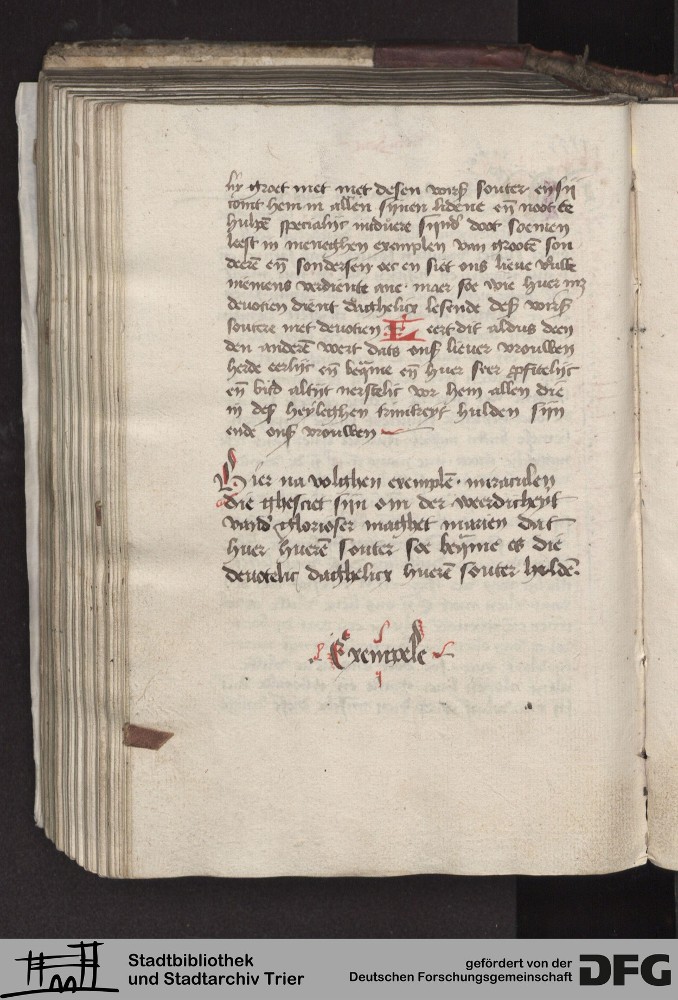 hy groet met met desen vorß souter eñ sij
comt hem in allen sijnen lidene eñ noot te
hulpē specialijc
leest in meneghen exemplen van grootē son
deerē eñ sondersen oec en siet ons lieve vrūwe
niemens verdiente ane maer soe wie huer mz
devotien dient daghelicx lesende deß vorß
soutere met devotien. Eert dit aldus deen
den anderē wert dats onß liever vrouwen
herde eerlijc eñ bequame eñ huer seer
eñ bid altijt nerstelic vor hem allen die
in deß heyleghen huldē sijn
ende onß vrouwen
Hier na volghen exemplē miraculen
die ghesciet sijn om der weerdicheyt
vand' glorioser maghet marien dat
huer huerē souter soe bequame es die
devotelic daghelicx huerē souter huldē.
Exempele
j
Stadtbibliothek
und Stadtarchiv Trier
gefördert von der
Deutschen Forschungsgemeinschaft
DFG